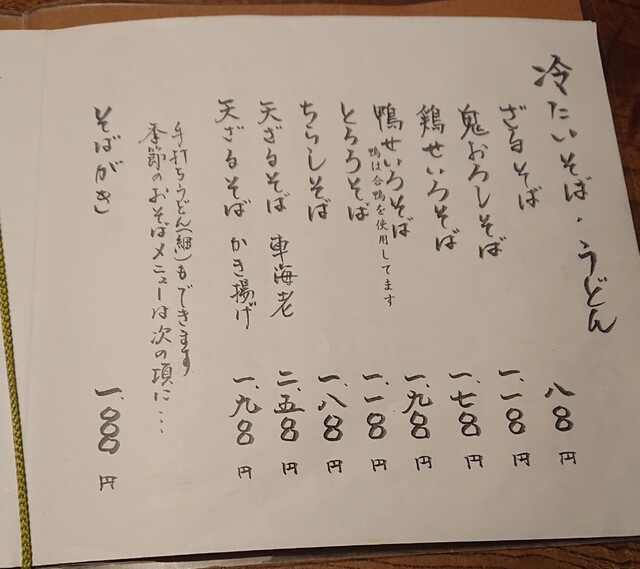 冷たいそば・うどん
ざるそば 八〇〇円
鬼おろしそば 一、一〇〇円
鶏せいろそば 一、七〇〇円
鴨せいろそば 一、九〇〇円
鴨は合鴨を使用してます
とろろそば 一、一〇〇円
ちらしそば 一、八〇〇円
天ざるそば 車海老 二、五〇〇円
天ざるそば かき揚げ 一、九〇〇円
手打ちうどん(細)もできます
季節のおそばメニューは次の項に…
そばがき 一、〇〇〇円